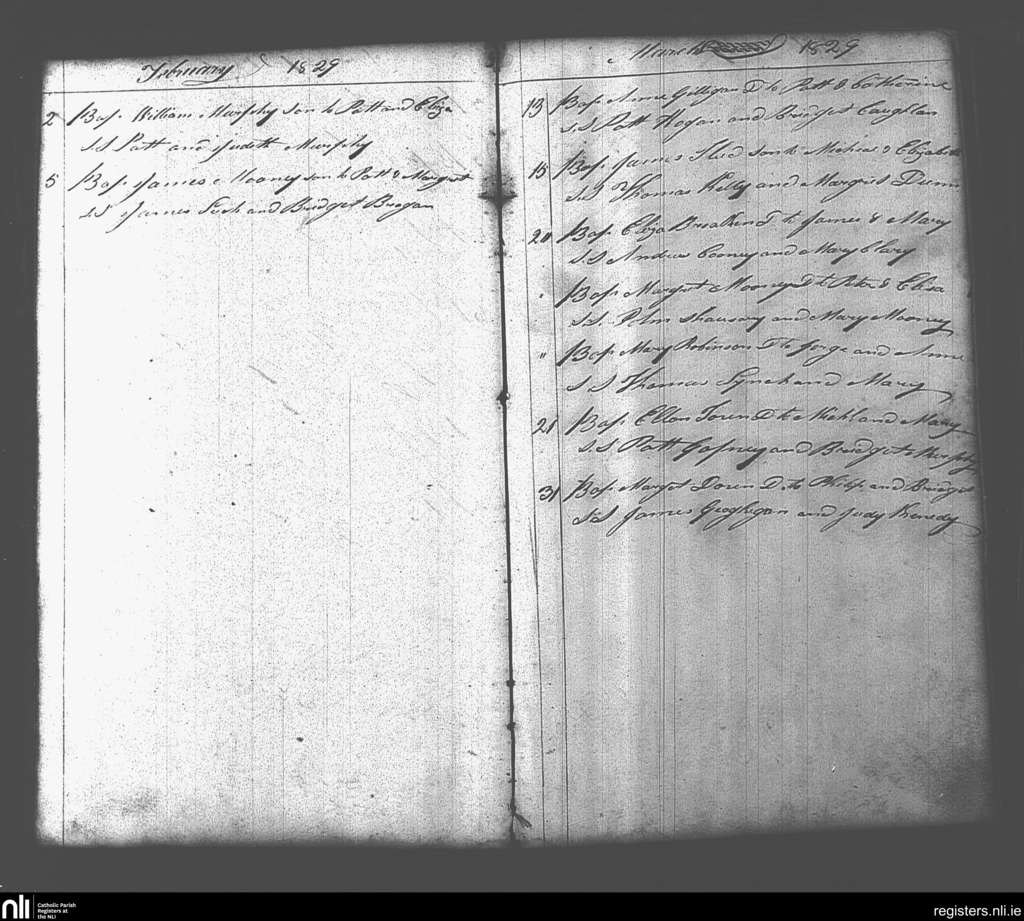 February 1829
2 Bap. William Murphy son to Patt and Eliza
S.S Patt and Judith Murphy
5 Bap. James Mooney son to Patt & Margret
S.S James and Bridget Brogan
March 1829
13 Bap. Anne Gilligan D to Patt & Catherine
S.S Patt Hogan and Bridget Caughlan
15 Bap. James son to & Elizabeth
S.S Thomas Kelly and Margret Dunn
20 Bap. Eliza D to James & Mary
S.S Andrew Cooney and Mary Clary
" Bap. Margret Mooney D to Peter & Elisa
S.S. and Mary Mooney
" Bap. Mary Robinson D to Jorge and Anne
S S Thomas Lynch and Mary
21 Bap. Ellon D to and Mary
S.S Patt Gafney and Bridget Murphy
31 Bap. Marget Doren D to Philip and Bridget
S.S James Geoghegan and Judy Kenedy
nli Catholic Parish
Registers at
the NLI
registers.nli.ie